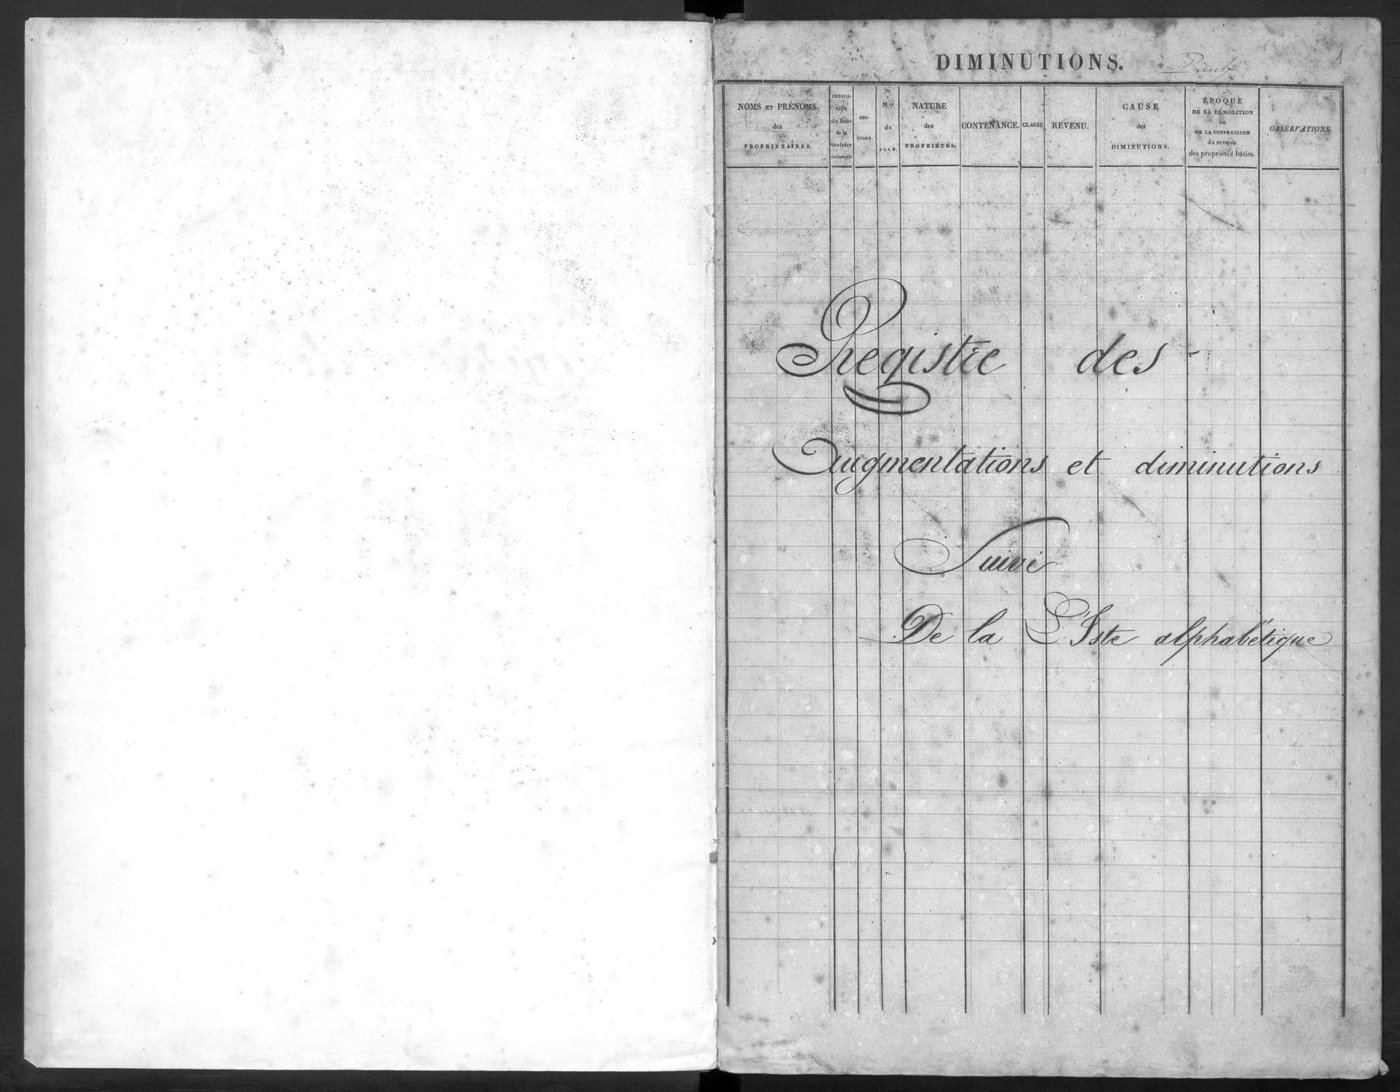 DIMINUTIONS.
NOMS ET PRÉNOMS des PROPRIÉTAIRES.
INDICATION du folio de la matrice
SECTIONS.
N.os du PLAN.
NATURE des PROPRIÉTÉS.
CONTENANCE.
CLASSE
REVENU.
CAUSE des DIMINUTIONS.
ÉPOQUE DE LA DÉMOLITION OU DE LA SUPPRESSION du revenu des propriétés bâties.
OBSERVATIONS.
Registre des
Augmentations et diminutions
Suivi
De la L'Iste alphabétique